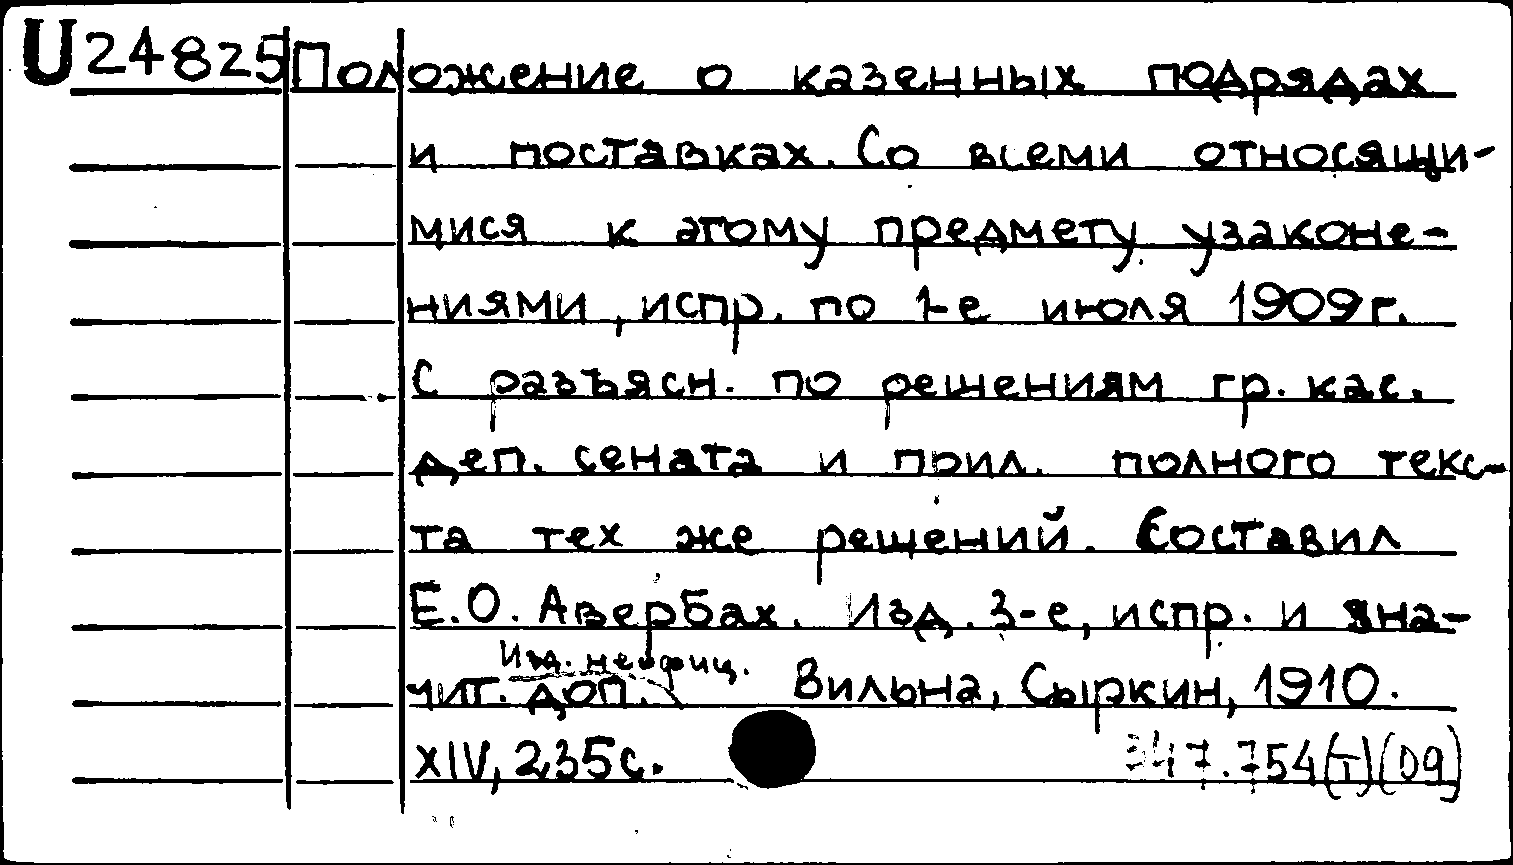 U24825 Положение о казенных подрядах
и поставках. Со всеми относящи-
мися к этому предмету узаконе-
ниями, испр. по 1-е июля 1909г.
С разъясн. по решениям гр. кас.
деп. сената и прил. полного текс-
та тех же решений. Составил
Е.О. Авербах. Изд. 3-е, испр. и зна-
Изд. неофиц.
чит. доп. Вильна, Сыркин, 1910.
XIV, 235с. 347.754(I)(09)